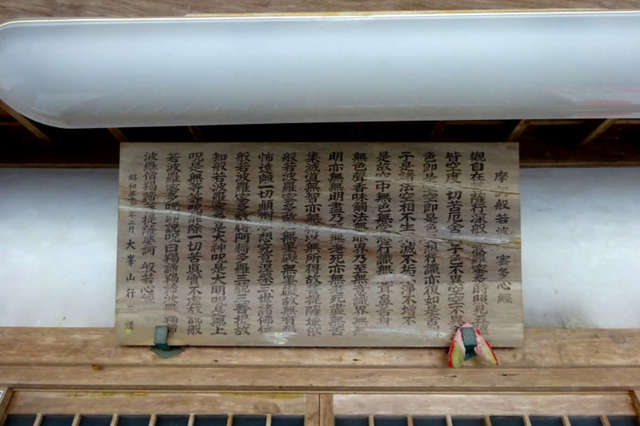 摩般若波蜜多心經
觀自在菩薩行深般若波羅蜜多時照見五蘊
皆空度一切苦厄舍利子色不異空空不異色
色即是空空即是色受想行識亦復如是舍利
子是諸法空相不生不滅不垢不淨不增不減
是故空中無色無受想行識無眼耳鼻舌身意
無色聲香味觸法無眼界乃至無意識界無無
明亦無無明盡乃至無老死亦無老死盡無苦
集滅道無智亦無得以無所得故菩提薩埵依
般若波羅蜜多故心無罣礙無罣礙故無有恐
怖遠離一切顛倒夢想究竟涅槃三世諸佛依
般若波羅蜜多故得阿耨多羅三藐三菩提故
知般若波羅蜜多是大神呪是大明呪是無上
呪是無等等呪能除一切苦真實不虛故説般
若波羅蜜多呪即説呪曰揭諦揭諦波羅揭諦
波羅僧揭諦菩提薩婆訶 般若心經
昭和年月 大峯山行